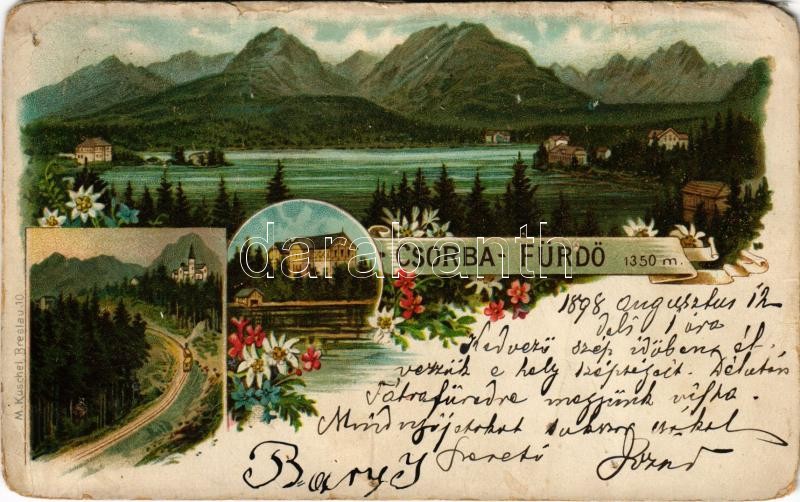 CSORBA - FÜRDÖ 1350 m.
M. Kuschel, Breslau. 10
darabanth
1898 augusztus 12
dél 1 óra
Kedvező szép időben él
vezzük e hely szépségeit. Délután
Tátrafüredre megyünk vissza.
Mindnyájatokat csókol
szerető József
Bary J